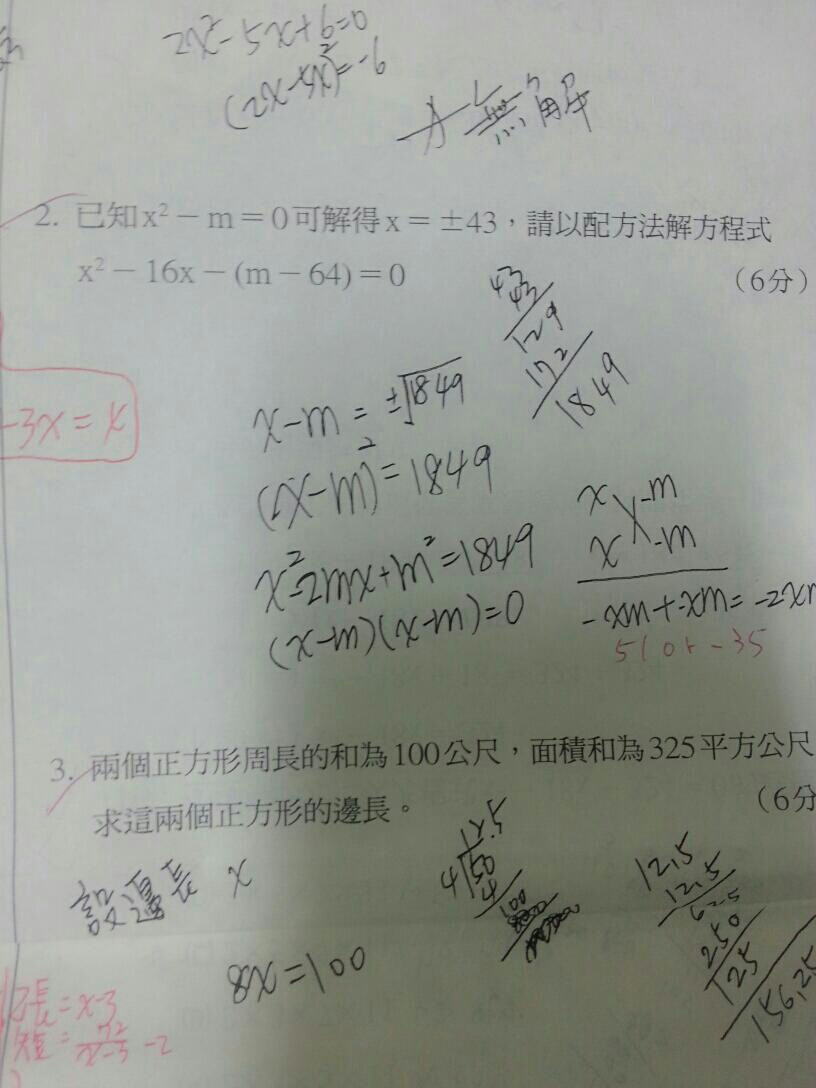 2x²-5x+6=0
(2x-5x)²=-6
無解
2. 已知x²－m＝0可解得x＝±43，請以配方法解方程式
x²－16x－(m－64)＝0 （6分）
43
43
129
172
1849
-3x=x
x-m=±√1849
(x-m)²=1849
x -m
x -m
x²-2mx+m²=1849
-xm+-xm=-2xm
(x-m)(x-m)=0
51or-35
3. 兩個正方形周長的和為100公尺，面積和為325平方公尺
求這兩個正方形的邊長。 （6分
設邊長 x
12.5
4√50
4
100
12.5
12.5
62.5
250
125
156.25
8x=100
長=x-3
=72/x-3 -2